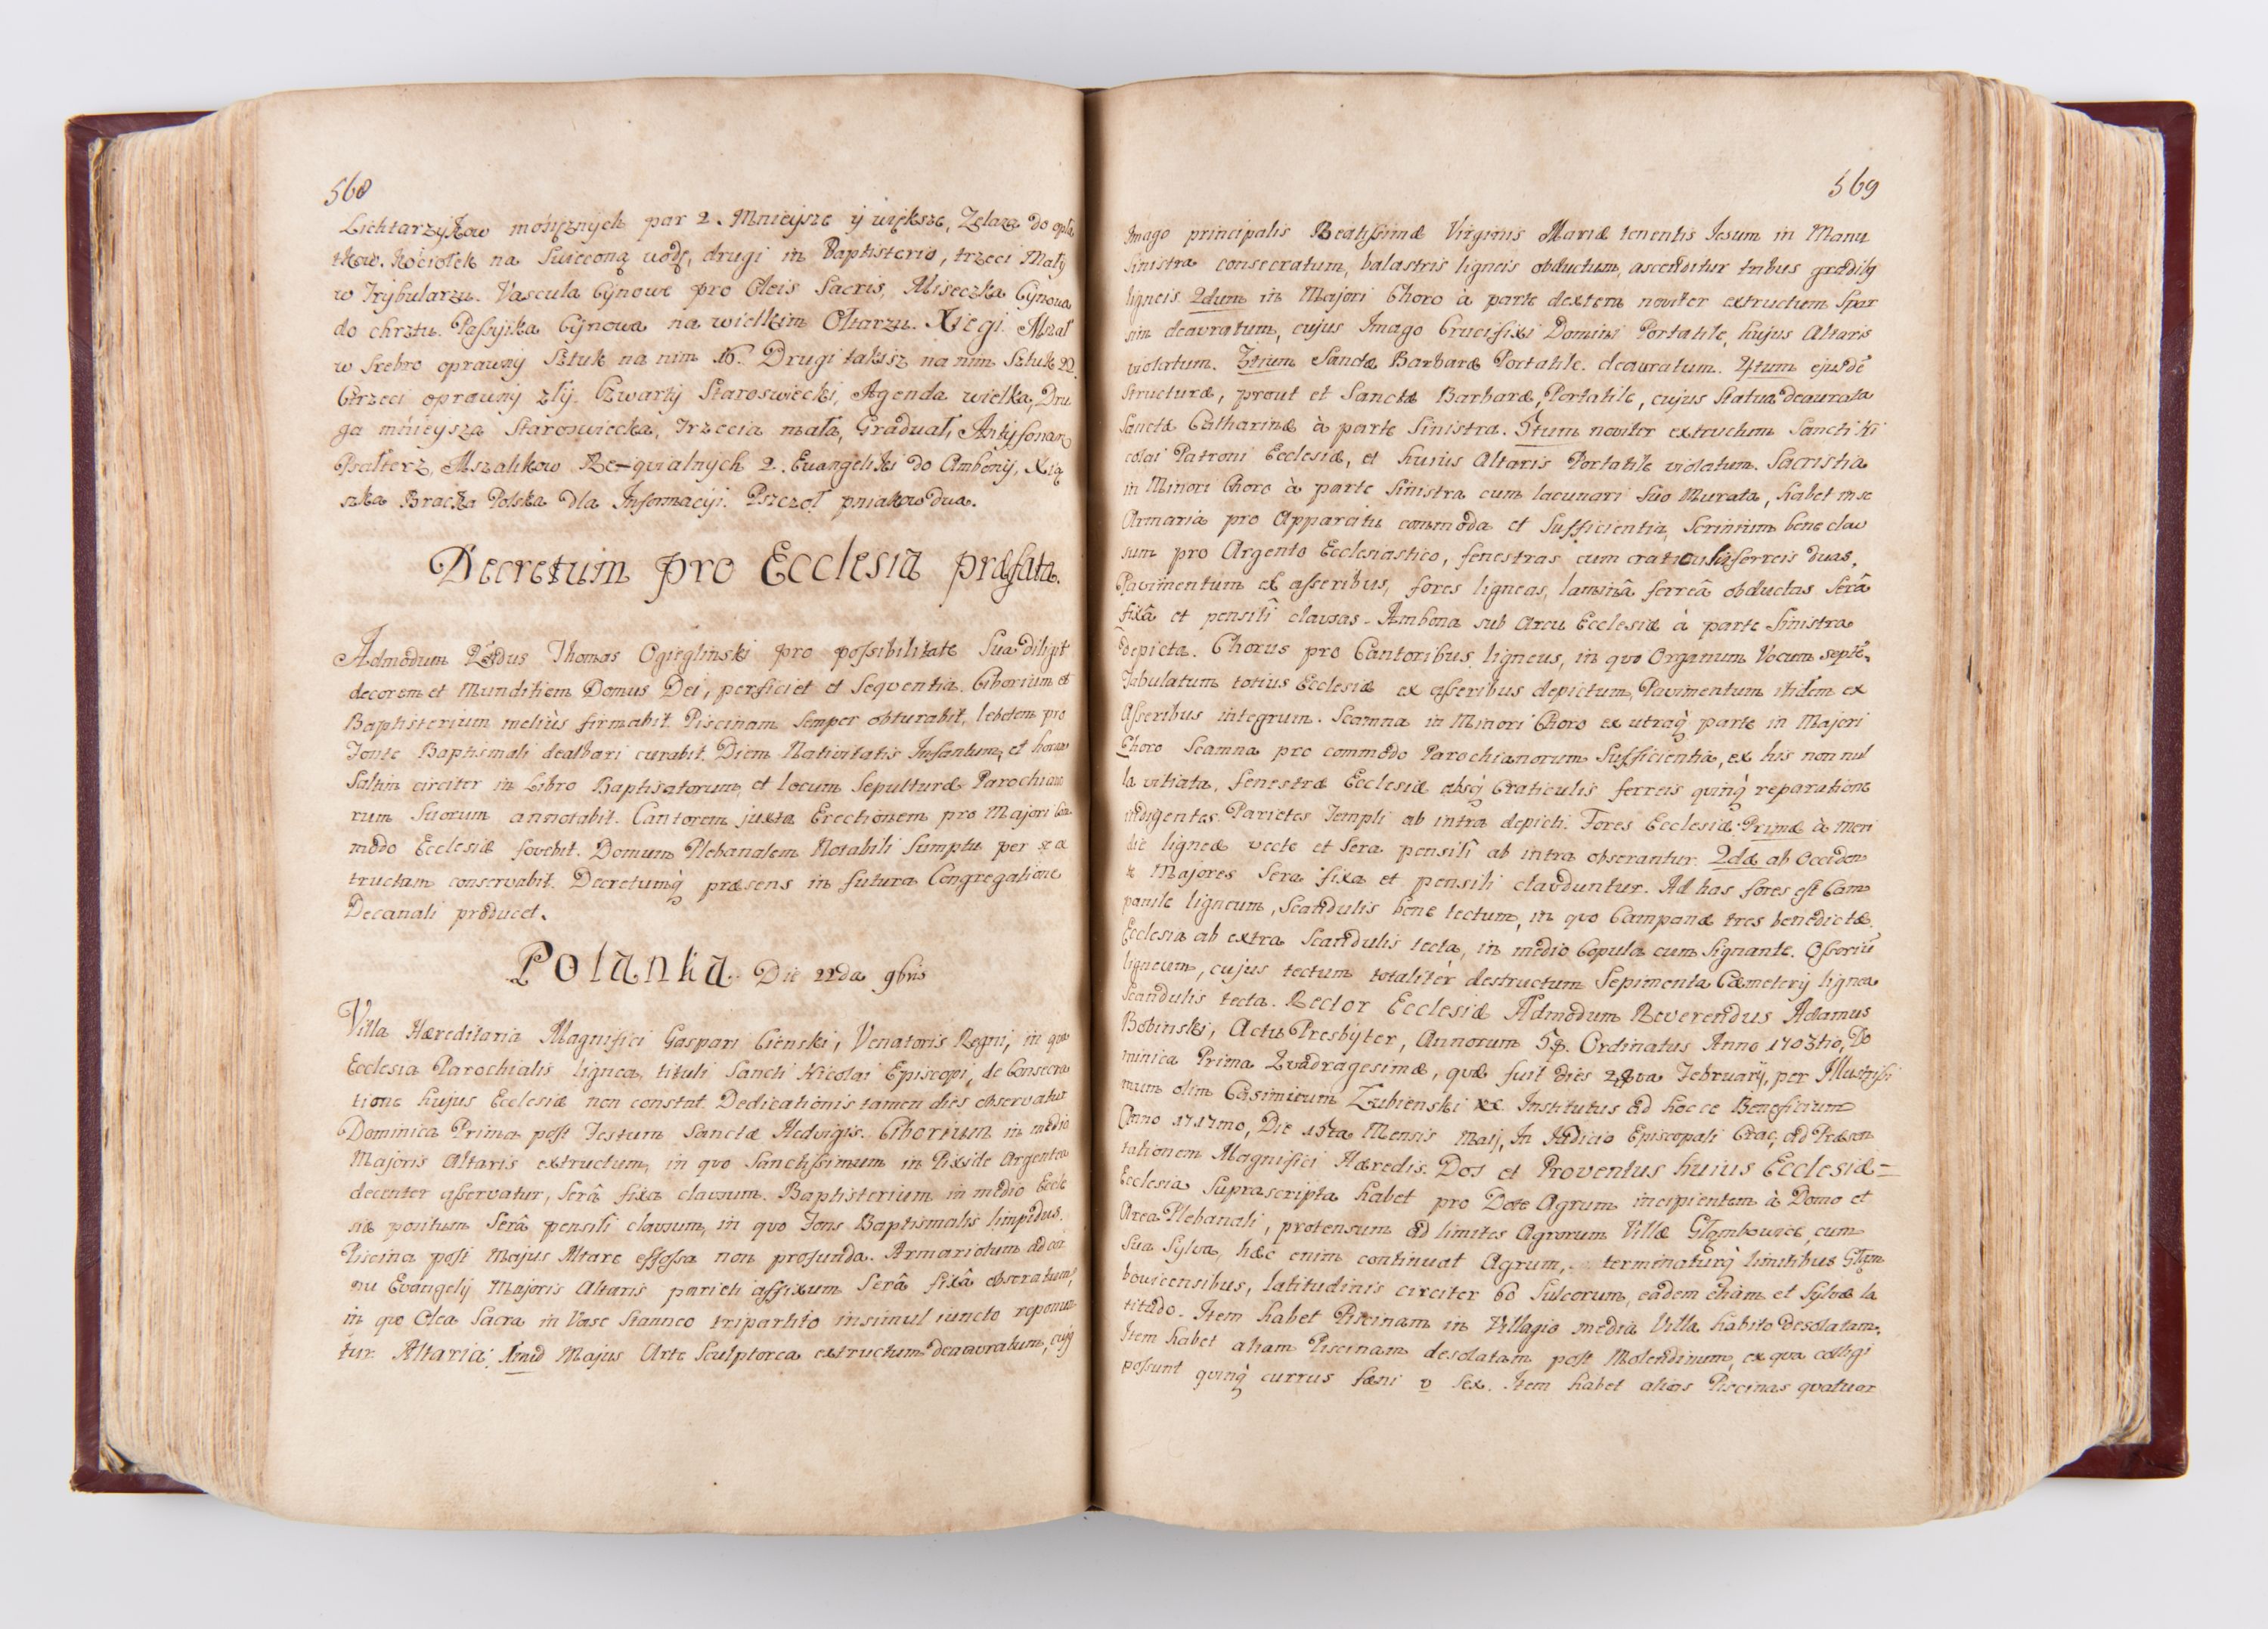 568
Lichtarzykow mosięznych par 2. Mnieysze y większe, Zelaza do opła
tkow. Kociołek na Swieconą wodę, drugi in Baptisterio, trzeci Mały
w Trybularzu. Vascula Cynowe pro Oleis Sacris, Miseczka Cynowa
do chrztu. Passyika Cynowa na wielkim Oltarzu. Xiegi. Mszał
w srebro oprawny Sztuk na nim 16. Drugi takisz na nim Sztuk 22.
Trzeci oprawny zły. Czwarty Staroswiecki, Agenda wielka, Dru
ga mnieysza Staroswiecka, Trzecia mała, Graduał, Antyfonarz
Psałterz, Mszalikow Re-quialnych 2. Euangeliki do Ambony, Xią
szka Bracka Polska dla Informacyi. Pszczoł pniakow dua.
Decretum pro Ecclesia præfata.
Admodum Rndus Thomas Ogieglinski pro possibilitate Sua diligit
decorem et Munditiem Domus Dei, perficiet et Seqventia. Ciborium et
Baptisterium meliùs firmabit. Piscinam Semper obturabit, lebetem pro
Fonte Baptismali dealbari curabit. Diem Nativitatis Infantum, et horam
Saltim circiter in Libro Baptisatorum, et locum Sepulturæ Parochiano
rum Suorum annotabit. Cantorem juxta Erectionem pro Majori Com
modo Ecclesiæ fovebit. Domum Plebanalem Notabili Sumptu per se ex
tructam conservabit. Decretumq́ præsens in futura Congregatione
Decanali producet.
Polanka. Die 22da 9bris
Villa Hæreditaria Magnifici Gaspari Cienski, Venatoris Regni, in qua
Ecclesia Parochialis lignea, tituli Sancti Nicolai Episcopi, de Consecra
tione hujus Ecclesiæ non constat. Dedicationis tamen dies observatur
Dominica Prima post Festum Sanctæ Hedvigis. Ciborium in medio
Majoris Altaris extructum, in quo Sanctissimum in Pixide Argentea
decenter asservatur, Serâ fixa clausum. Baptisterium in medio Eccle
siæ positum Serâ pensili clausum, in quo Fons Baptismalis limpidus.
Piscina post Majus Altare effossa non profunda. Armariolum ad cor
nu Evangelij Majoris Altaris parieti affixum Serâ fixâ obseratum,
in quo Olea Sacra in Vase Stanneo tripartito insimul iuncto reponun
tur. Altaria: Imūd Majus Arte Sculptorea extructum deauratum, cujq
569
Imago principalis Beatissimæ Virginis Mariæ tenentis Iesum in Manu
Sinistra consecratum, balastris ligneis obductum, ascenditur tribus gradibq
ligneis. 2dum in Majori Choro à parte dextera noviter extructum Spar
sim deauratum, cujus Imago Crucifixi Domini Portatile, hujus Altaris
violatum. 3tium Sanctæ Barbaræ Portatile. deauratum. 4tum ejusdē
Structuræ, prout et Sanctæ Barbaræ, Portatile, cujus Statua deaurata
Sanctæ Catharinæ à parte Sinistra. 5tum noviter extructum Sancti Ni
colai Patroni Ecclesiæ, et hujus Altaris Portatile violatum. Sacristia
in Minori Choro à parte Sinistra cum lacunari Suo Murata, habet in se
Armaria pro Apparatu commoda et Sufficientia, Scrinium bene clau
sum pro Argento Ecclesiastico, fenestras cum craticulis ferreis duas,
Pavimentum ex asseribus, fores ligneas, laminâ ferreâ obductas Serâ
fixâ et pensili clausas. Ambona sub Arcu Ecclesiæ à parte Sinistra
depicta. Chorus pro Cantoribus ligneus, in quo Organum Vocum septē.
Tabulatum totius Ecclesiæ ex asseribus depictum, Pavimentum itidem ex
Asseribus integrum. Scamna in Minori Choro ex utraq́ parte in Majori
Choro Scamna pro commodo Parochianorum Sufficientia, ex his non nul
la vitiata, Fenestræ Ecclesiæ absq́ Craticulis ferreis quinq́ reparatione
indigentes. Parietes Templi ab intra depicti. Fores Ecclesiæ Primæ à Meri
die ligneæ vecte et Sera pensili ab intra obserantur. 2dæ ab Occiden
te Majores Sera fixa et pensili clauduntur. Ad has fores est Cam
panile ligneum, Scandulis bene tectum, in quo Campanæ tres benedictæ.
Ecclesia ab extra Scandulis tecta, in medio Copula cum Signante. Ossoriū
ligneum, cujus tectum totalitèr destructum Sepimenta Cæmeterij lignea
Scandulis tecta. Rector Ecclesiæ Admodum Reverendus Adamus
Bobinski, Actu Presbyter, Annorum Ordinatus Anno 1703tio, Do
minica Prima Qvadragesimæ, quæ fuit dies Februarij, per Illustrissi
mum olim Casimirum Łubienski &c. Institutus ad hocce Beneficium
Anno 1717mo, Die 15ta Mensis Maij, In Judicio Episcopali Crac, ad Præsen
tationem Magnifici Hæredis. Dos et Proventus huius Ecclesiæ =
Ecclesia Suprascripta habet pro Dote Agrum incipientem à Domo et
Area Plebanali, protensum ad limites Agrorum Villæ Głęmbowice, cum
Sua Sylva, hæc enim continuat Agrum, terminaturq́ limitibus Głęm
bovicensibus, latitudinis circiter 60 Sulcorum, eadem etiam et Sylvæ la
titudo. Item habet Piscinam in Villagio media Villa habito Desolatam.
Item habet aliam Piscinam desolatam post Molendinum, ex qua colligi
possunt quinq́ currus fæni v Sex. Item habet alias Piscinas quatuor